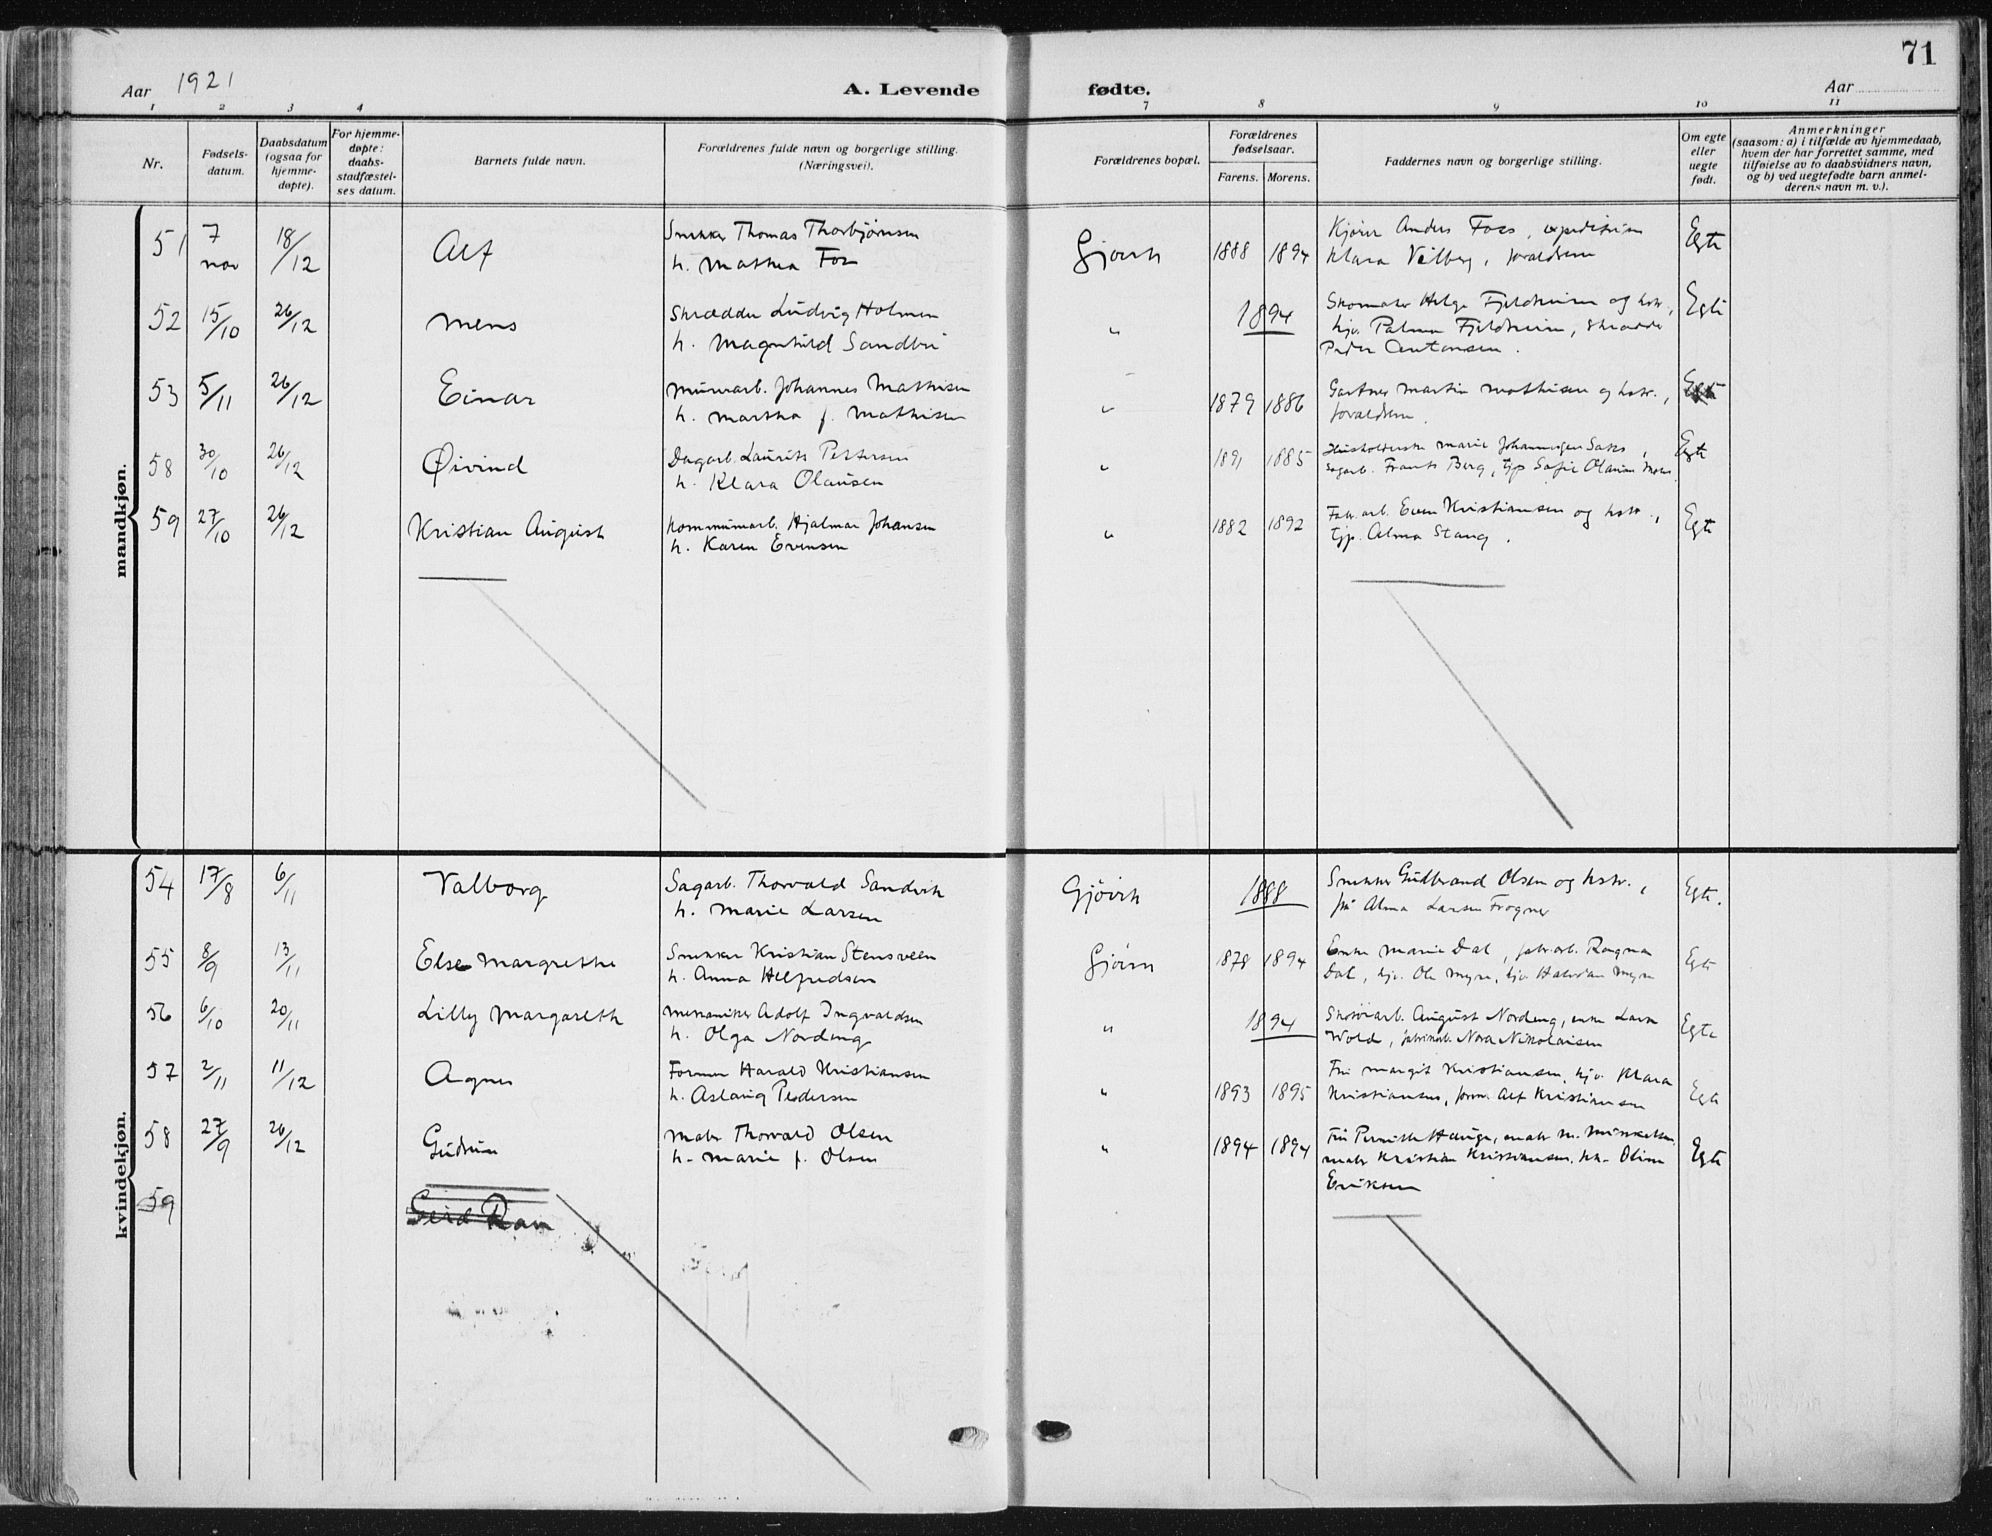 71
Aar 1921
A. Levende fødte.
Aar
1 2 3 4 7 8 9 10 11
Nr.
Fødsels-
datum.
Daabsdatum
(ogsaa for
hjemme-
døpte).
For hjemme-
døpte:
daabs-
stadfæstel-
ses datum.
Barnets fulde navn.
Forældrenes fulde navn og borgerlige stilling.
(Næringsvei).
Forældrenes bopæl.
Forældrenes
fødselsaar.
Farens. Morens.
Faddernes navn og borgerlige stilling.
Om egte
eller
uegte
født.
Anmerkninger
(saasom: a) i tilfælde av hjemmedaab,
hvem der har forrettet samme, med
tilføielse av to daabsvidners navn,
og b) ved uegtefødte barn anmel-
derens navn m. v.).
mandkjøn.
51 7 nov 18/12 Alf Snekker Thomas Thorbjørnsen
h. Mathea Foss
Gjøvik 1888 1894 Kjører Anders Foss,
Klara Vilberg, forældrene
Egte
52 15/10 26/12 Mens Skrædder Ludvig Holmen
h. Magnhild Sandbu
" 1894 Skomaker Helge Fjeldheim og hstr.,
hjv. Palma Fjeldheim, skrædder
Peder Antonsen.
Egte
53 5/11 26/12 Einar Murarb. Johannes Mathisen
h. Martha f. Mathisen
" 1879 1886 Gartner Martin Mathisen og hstr.,
forældrene.
Egte
58 30/10 26/12 Øivind Dagarb. Laurits Pettersen
h. Klara Olausen
" 1891 1885 Husholderske Marie Johannesen
Sagarb. Frants Berg, tjp Sofie Olausen
Egte
59 27/10 26/12 Kristian August Kommunearb. Hjalmar Johansen
h. Karen Evensen
" 1882 1892 Fabr.arb. Even Kristiansen og hstr.,
tjp. Alma Stang.
Egte
kvindekjøn.
54 17/8 6/11 Valborg Sagarb. Thorvald Sandvik
h. Marie Larsen
Gjøvik 1888 Snekker Gudbrand Olsen og hstr.,
frk Alma Larsen Frogner
Egte.
55 8/9 13/11 Else Margrethe Snekker Kristian Stensveen
h. Anna Helfredsen
Gjøvik 1878 1894 Enke Marie Dal, fabr.arb. Ragna
Dal, hjv. Ole Myre, hjv. Halvdan Myre
Egte
56 6/10 20/11 Lilly Margareth Mekaniker Adolf Ingvaldsen
h. Olga Nordeng
" 1894 Skotøiarb. August Nordeng, enke
Wold, fabrikarb. Nora Nikolaisen
Egte
57 2/11 11/12 Agnes Former Harald Kristiansen
h. Aslaug Pedersen
" 1893 1895 Fru Margit Kristiansen, hjv. Klara
Kristiansen, form. Alf Kristiansen
Egte
58 27/9 26/12 Gudrun Maler Thorvald Olsen
h. Marie f. Olsen
" 1894 1894 Fru Pernille Hauge, maler M. Mikkelsen,
maler Kristian Kristiansen, Oline
Eriksen
Egte
59 Gerd Ran